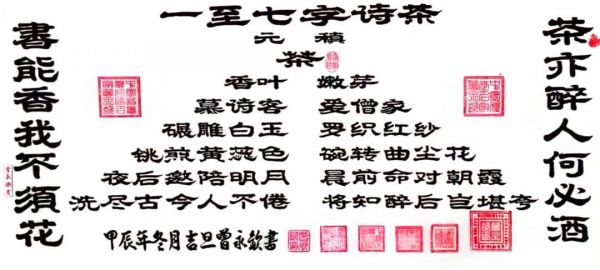 茶亦醉人何必酒
一至七字诗茶
元稹
茶
香叶 嫩芽
慕诗客 爱僧家
碾雕白玉 罗织红纱
铫煎黄蕊色 碗转曲尘花
夜后邀陪明月 晨前命对朝霞
洗尽古今人不倦 将知醉后岂堪夸
甲辰年冬月吉旦曾永欽書
書能香我不須花